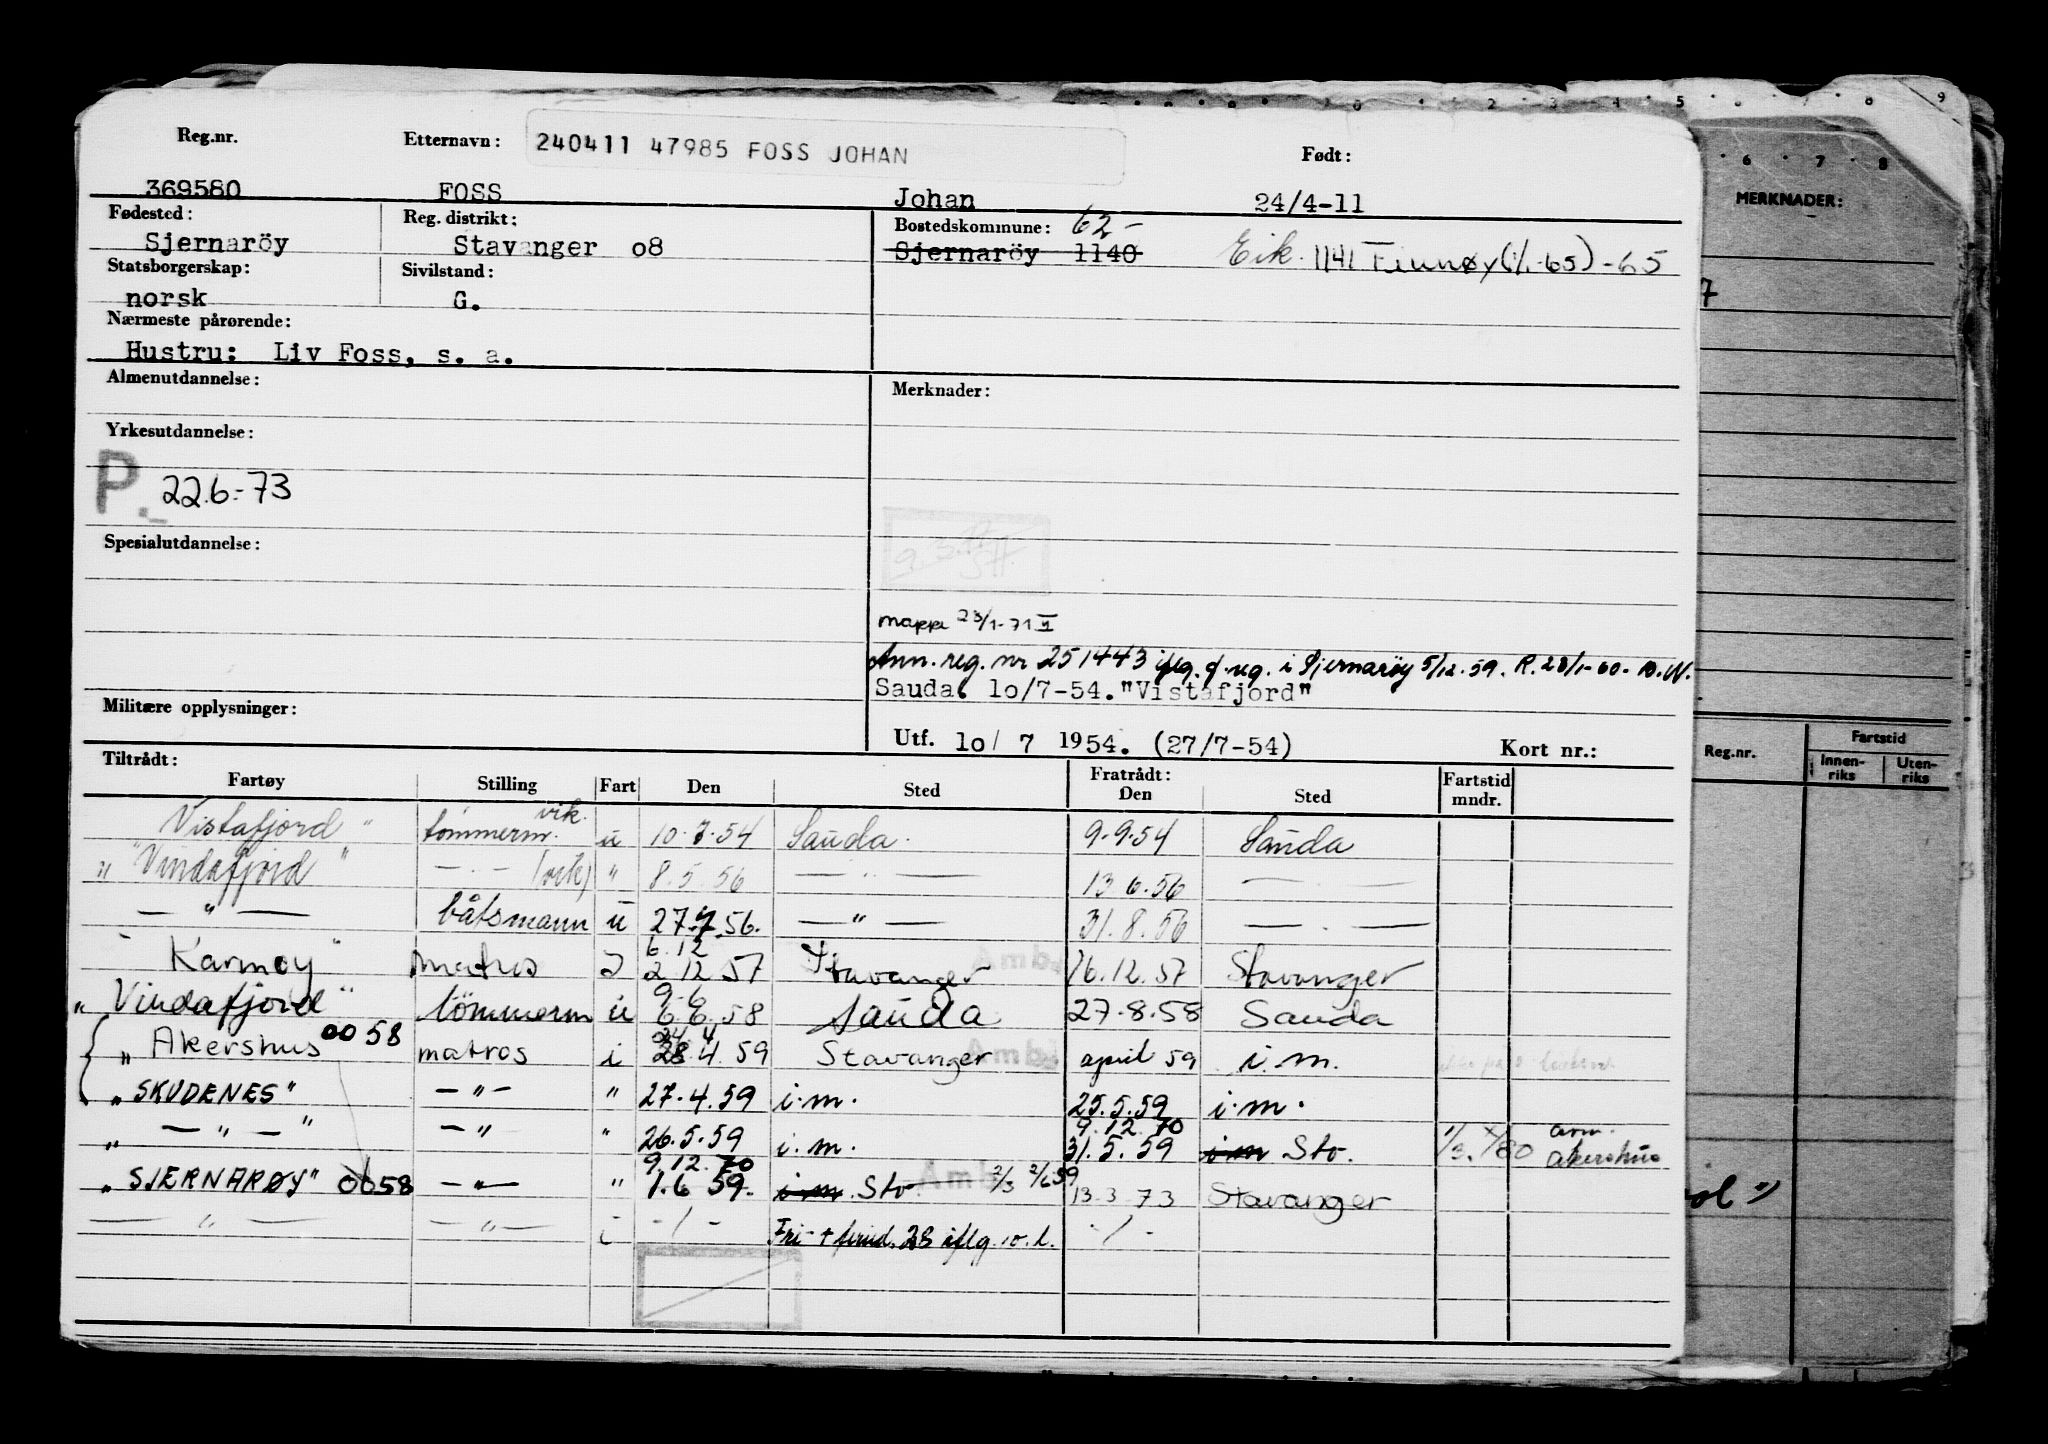 Reg.nr. Etternavn: 240411 47985 FOSS JOHAN Født:
369580 FOSS Johan 24/4-11
Fødested: Reg. distrikt: Bostedskommune: 62-
Sjernaröy Stavanger o8 Sjernaröy 1140 Eik. 1141 Finnøy (1/1-65) -65
Statsborgerskap: Sivilstand:
norsk G.
Nærmeste pårørende:
Hustru: Liv Foss, s. a.
Almenutdannelse: Merknader:
Yrkesutdannelse:
P. 22.6.-73
Spesialutdannelse:
mappe 23/1-71
Ann. reg. nr 251443 iflg. f. reg. i Sjernaröy 5/12.59. R. 28/1-60- B.N.
Sauda. lo/7-54. "Vistafjord"
Militære opplysninger:
Utf. lo/ 7 1954. (27/7-54) Kort nr.:
Tiltrådt: Fratrådt:
Fartøy Stilling Fart Den Sted Den Sted Fartstid mndr.
Vistafjord " tömmerm. vik. u 10.7.54 Sauda. 9.9.54 Sauda
" Vindafjord " — . — (vik) " 8.5.56 — " — 13.6.56 — . —
— " — båtsmann u 27.7.56. — " — 31.8.56 — . —
6.12
" Karmøy " matros I 2.12.57 Stavanger 16.12.57 Stavanger
9.6
" Vindafjord " tömmerm u 6.6.58 Sauda 27.8.58 Sauda
24 4
" Akershus 0058 matros i 28.4.59 Stavanger april 59 i.m.
" SKUDENES " — " — " 27.4.59 i.m. 25.5.59 i.m.
9.12.70
" — " — " — " " 26.5.59 i.m. 31.5.59 i m Stv. akershus
9.12.70
" SJERNARØY " 0058 — " — " 1.6 59. i m Stv 13.3.73 Stavanger
— " — — " — i - / - - / -
MERKNADER:
Reg.nr. Fartstid
Innen-riks Uten-riks